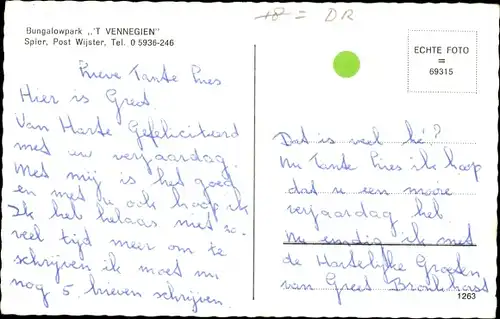 Bungalowpark ,,'T VENNEGIEN"
Spier, Post Wijster, Tel. 0 5936-246
+8 = DR
ECHTE FOTO
=
69315
Lieve Tante Pies
Hier is Greet.
Van Harte Gefeliciteerd
met uw verjaardag.
Met mij is het goed
en met u ook hoop ik
Ik heb helaas niet zo
veel tijd meer om te
schrijven ik moet nu
nog 5. brieven schrijven.
Dat is veel hé?
Nu Tante Pies ik hoop
dat u een mooie
verjaardag heb.
Nu eindig ik met
de Hartelijke Groeten
van Greet Bronkhorst
1263